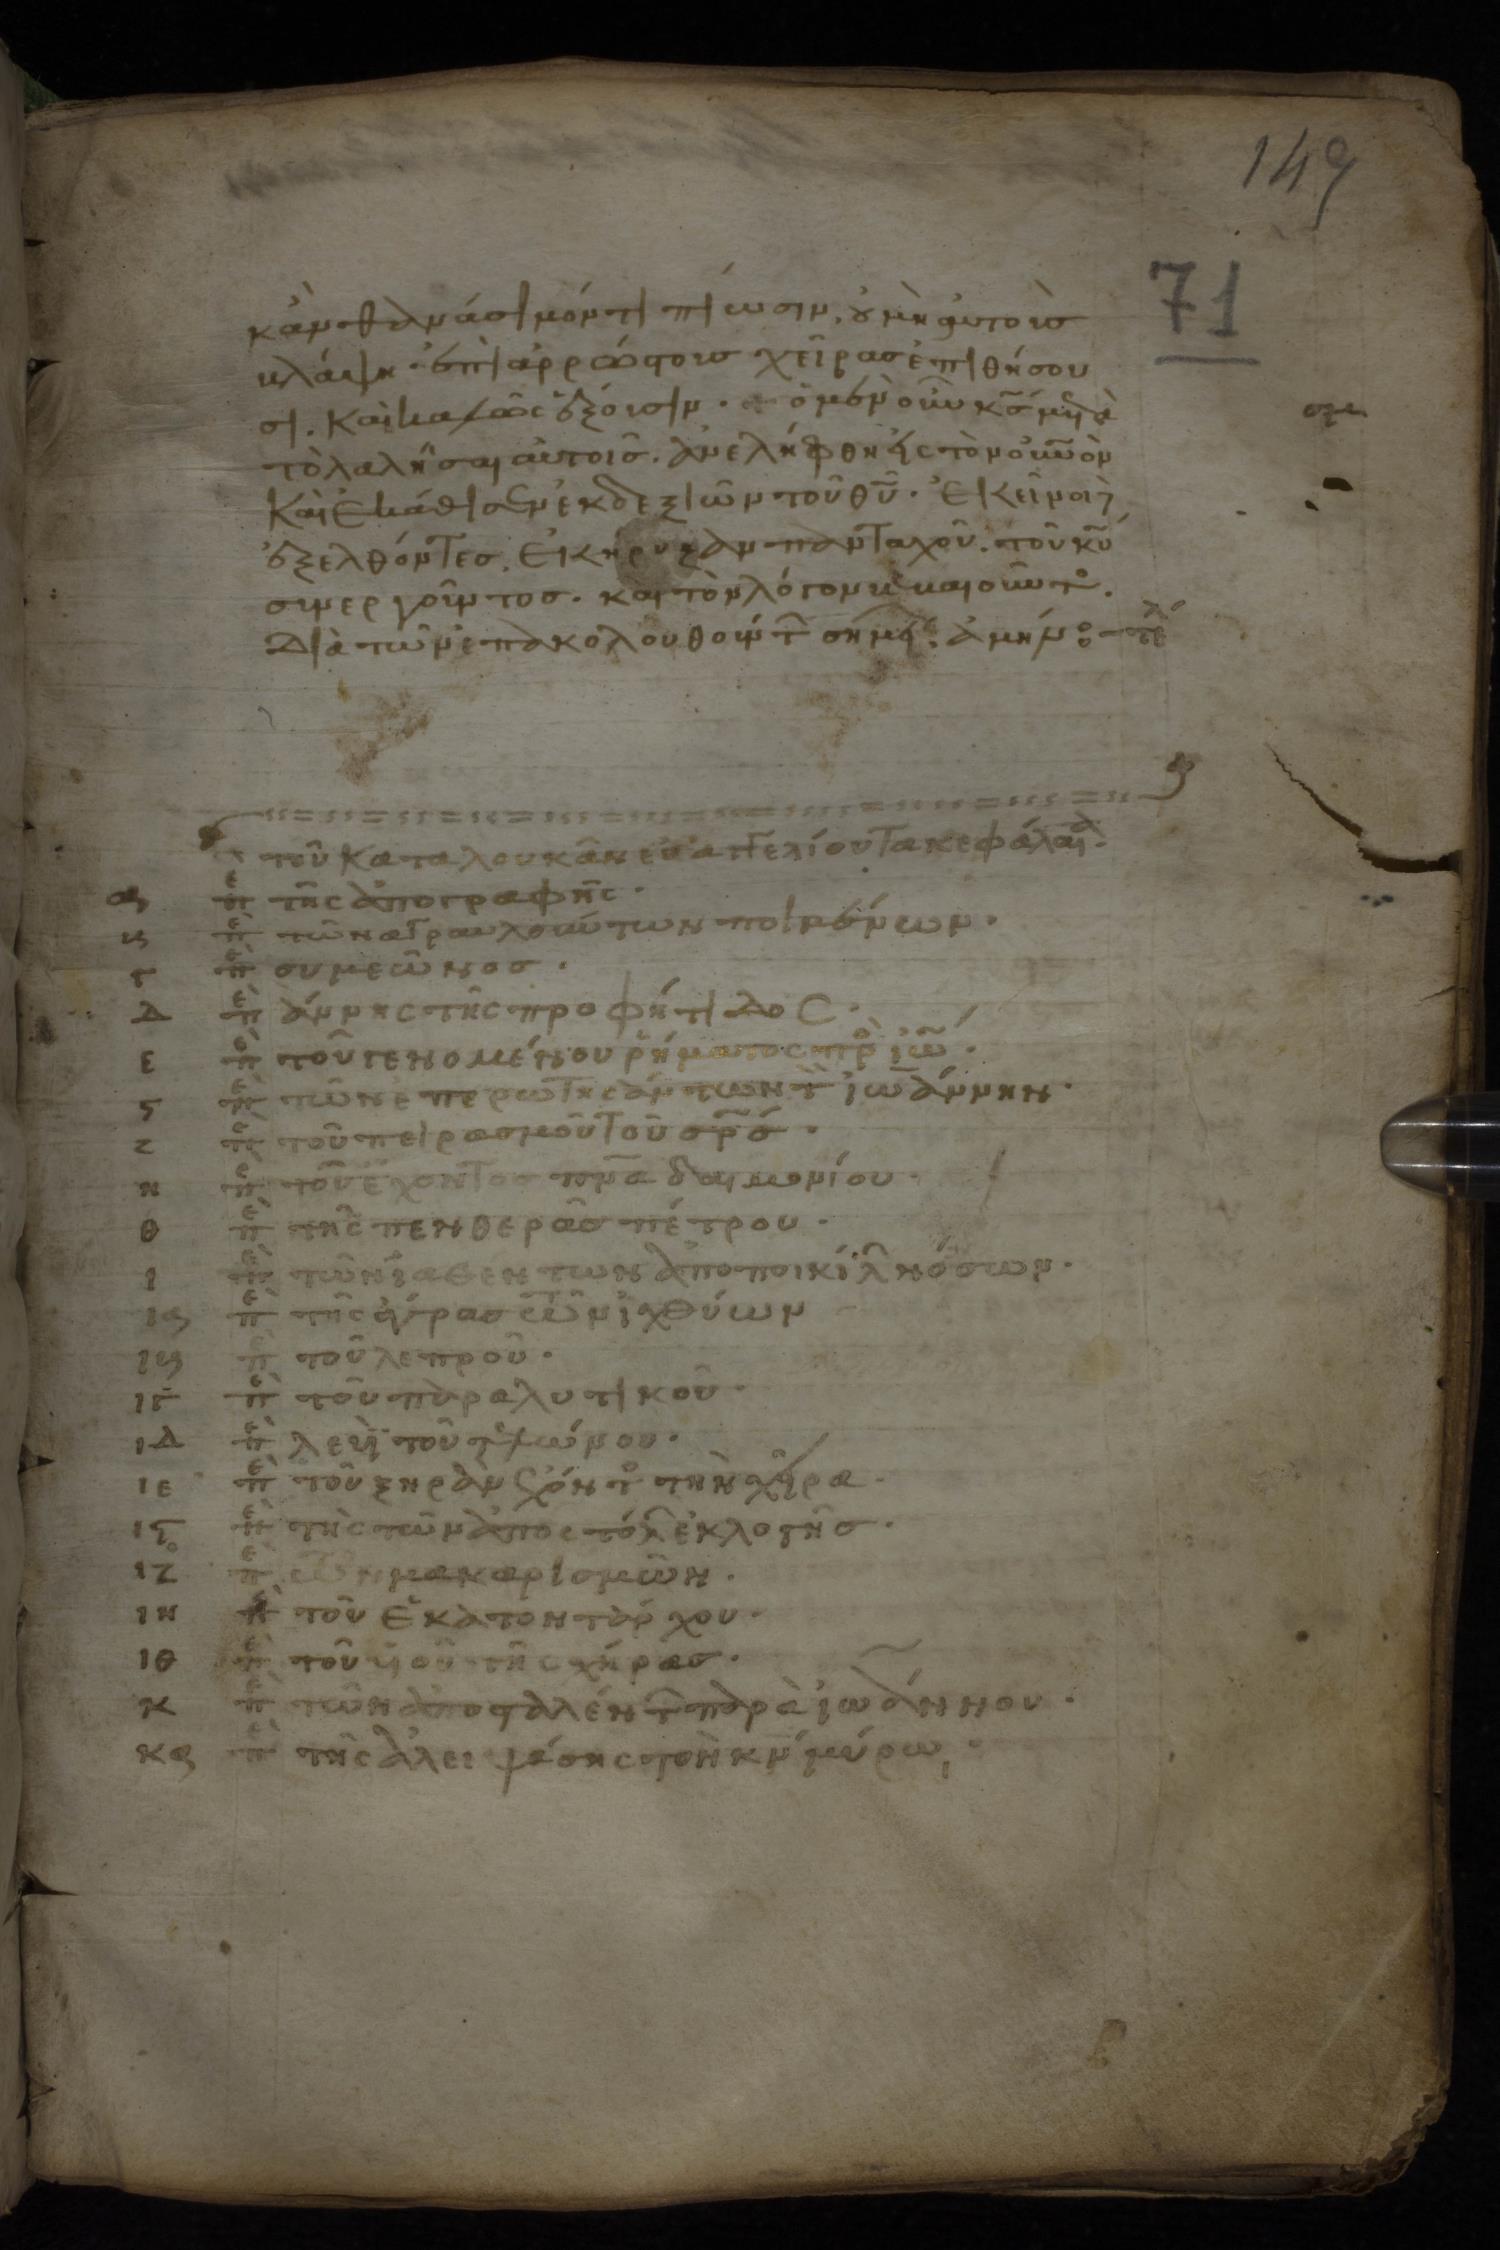 149
71
κἂν θανάσιμόν τι πίωσιν, οὐ μὴ αὐτοὺς
βλάψη· ἐπὶ ἀρρώστους χεῖρας ἐπιθήσου
σι. καὶ καλῶς ἕξουσιν· ὁ μὲν οὖν κ̅ς̅ μετὰ
τὸ λαλῆσαι αὐτοῖς. ἀνελήφθη εἰς τὸν οὐ̅νο̅ν
καὶ ἐκάθισεν ἐκ δεξιῶν τοῦ θ̅υ̅· ἐκεῖνοι
ἐξελθόντες. ἐκήρυξαν πανταχοῦ. τοῦ κ̅υ̅
συνεργοῦντος. καὶ τὸν λόγον βεβαιοῦντ
διὰ τῶν ἐπακολουθούντ σημεί: ἀμήν: τέ
τοῦ κατὰ λουκᾶν εὐαγγελίου τὰ κεφάλαια
α πε τῆς ἀπογραφῆς·
β πε τῶν ἀγραυλούντων ποιμένων·
γ πε συμεῶνος·
Δ πε ἄννης τῆς προφήτιδος·
ε πε τοῦ γενομένου ῥήματος πρ ἰω̅·
ς πε τῶν ἐπερωτησάντων τ ἰωάννην·
ζ πε τοῦ πειρασμοῦ τοῦ σ̅ρ̅ς̅·
η πε τοῦ ἔχοντος π̅ν̅α̅ δαιμονίου·
θ πε τῆς πενθερᾶς πέτρου·
ι πε τῶν ἰαθέντων ἀπὸ ποικίλ νόσων·
ια πε τῆς ἄγρας τῶν ἰχθύων
ιβ πε τοῦ λεπροῦ·
ιγ πε τοῦ παραλυτικοῦ·
ιΔ πε λευὶ τοῦ τελώνου·
ιε πε τοῦ ξηρὰν ἔχοντ τὴν χεῖρα·
ις πε τῆς τῶν ἀποστόλ ἐκλογῆς·
ιζ πε τῶν μακαρισμῶν·
ιη πε τοῦ ἑκατοντάρχου·
ιθ πε τοῦ υἱοῦ τῆς χήρας·
κ πε τῶν ἀποσταλέντ παρὰ ἰωάννου·
κα πε τῆς ἀλειψάσης τὸν κ̅ν̅ μύρω·